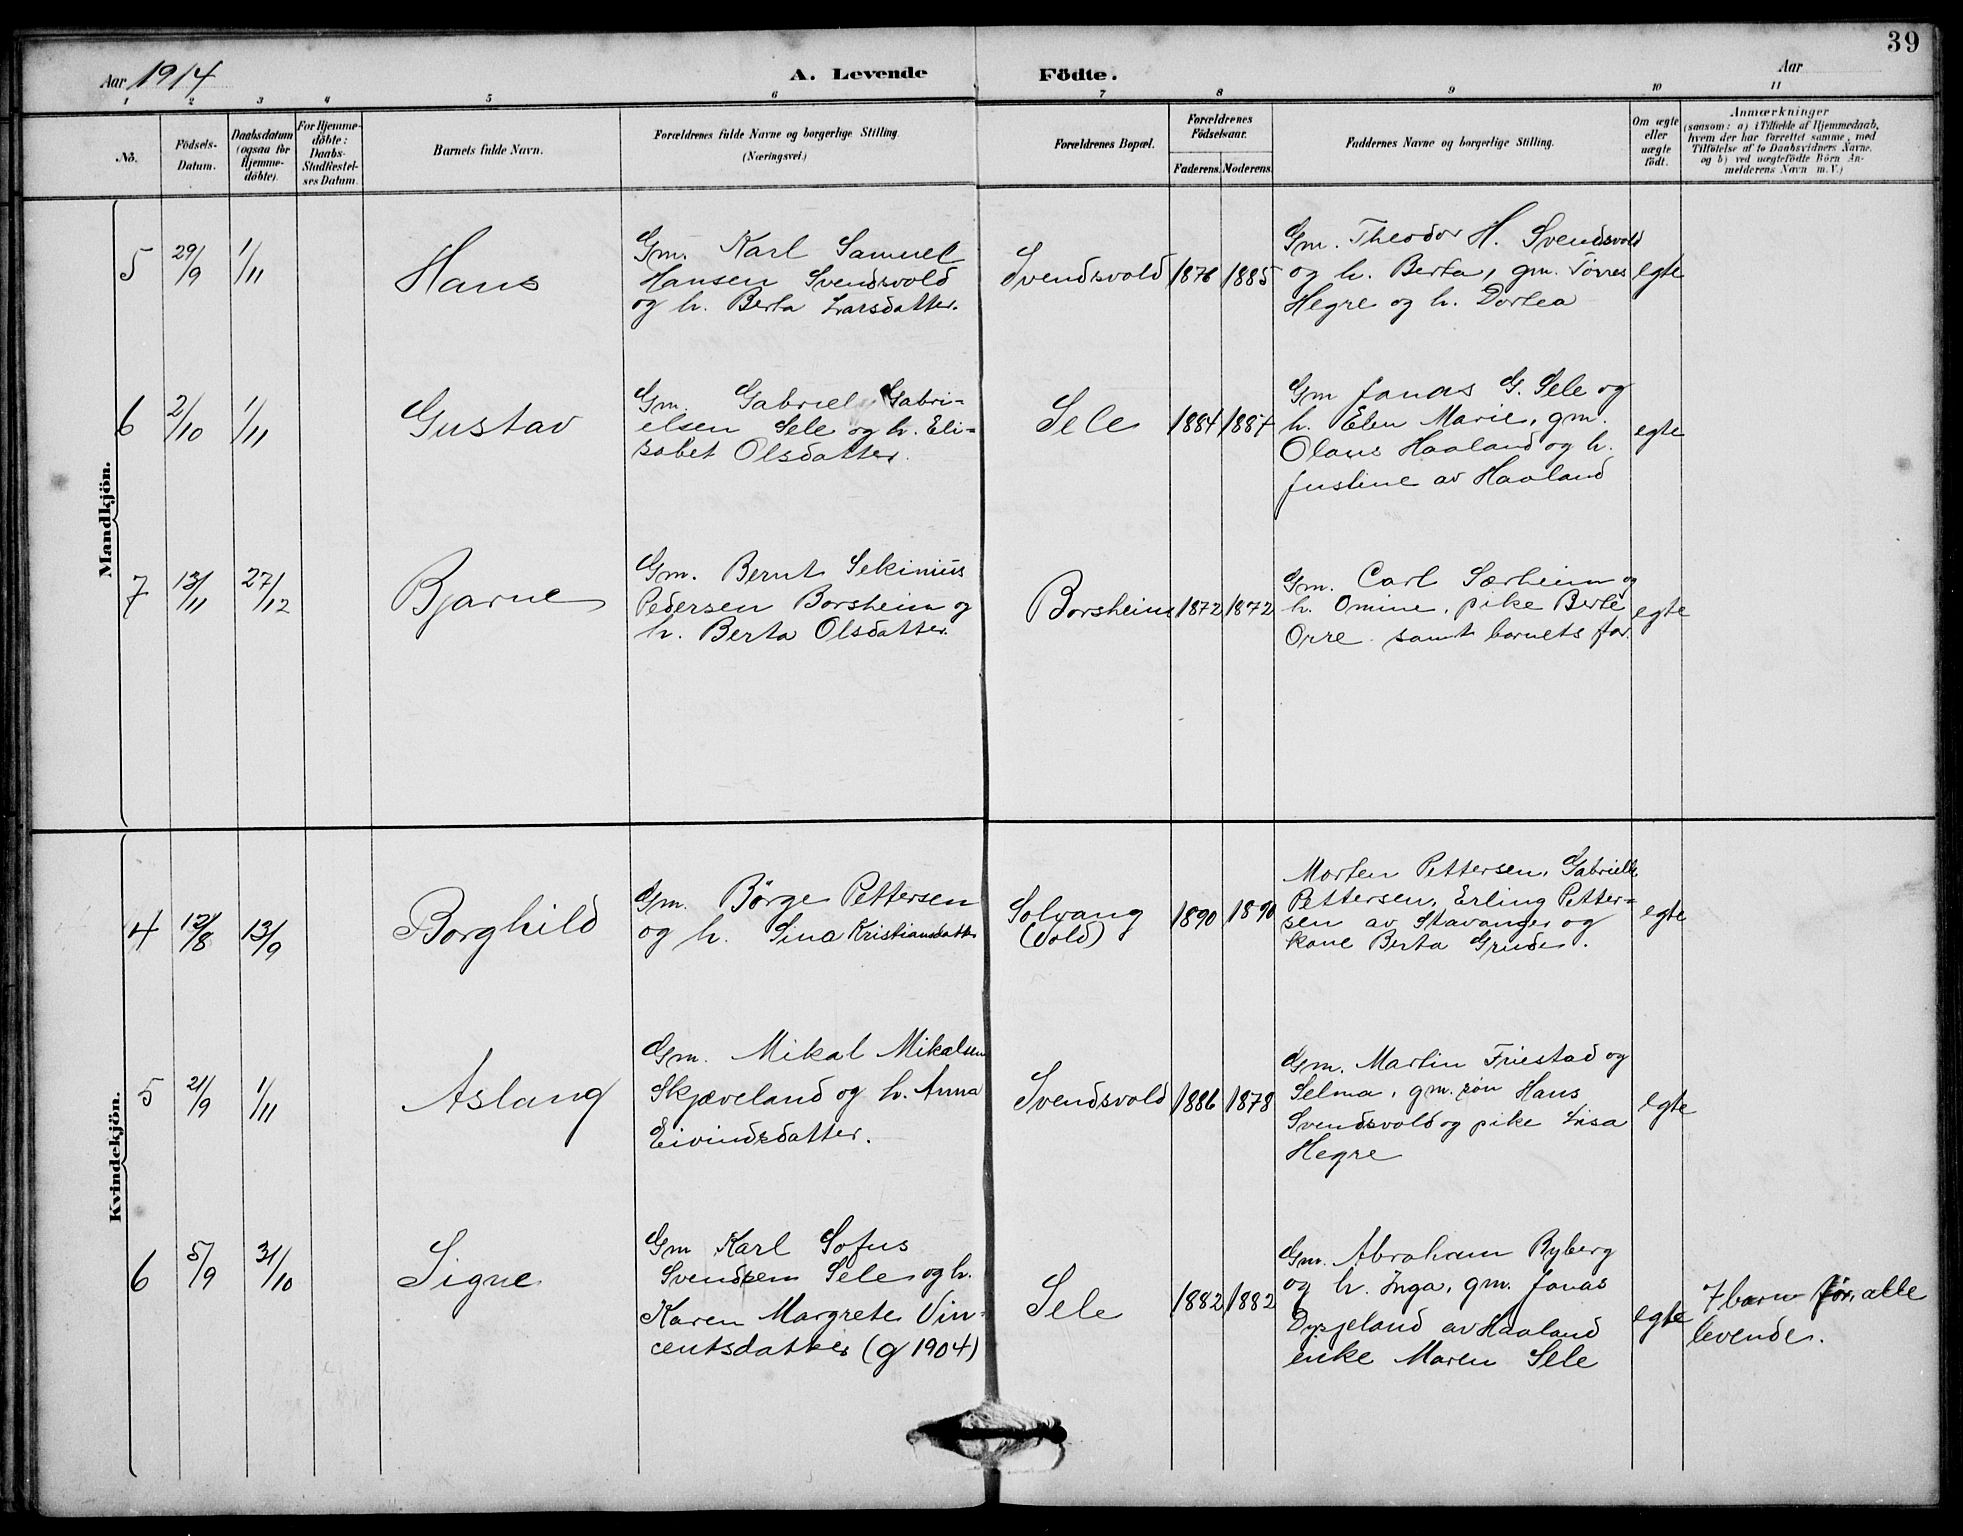 39
Aar 1914
A. Levende Födte.
Aar
1 2 3 4 5 6 7 8 9 10 11
No.
Födsels-
Datum.
Daabsdatum
(ogsaa for
Hjemme-
döbte).
For Hjemme-
döbte:
Daabs-
Stadfæstel-
ses Datum.
Barnets fulde Navn.
Forældrenes fulde Navne og borgerlige Stilling.
(Næringsvei.)
Forældrenes Bopæl.
Forældrenes
Födselsaar.
Faderens. Moderens.
Faddernes Navne og borgerlige Stilling.
Om ægte
eller
uægte
födt.
Anmærkninger
(saasom: a) i Tilfælde af Hjemmedaab,
hvem der har forrettet samme, med
Tilföielse af to Daabsvidners Navne,
og b) ved uægtefödte Börn An-
melderens Navn m. V.)
Mandkjön.
5
29/9
1/11
Hans
Gm. Karl Samuel
Hansen Svendsvold
og h. Berta Larsdatter.
Svendsvold
1876
1885
Gm. Theodor H. Svendsvold
og h. Berta, gm. Tørres
Hegre og h. Dortea
egte
6
2/10
1/11
Gustav
Gm. Gabriel Gabri-
elsen Sele og h. Eli-
sabet Olsdatter.
Sele
1884
1887
Gm Jonas G. Sele og
h. Elen Marie, gm.
Olaus Haaland og h.
Justine av Haaland
egte
7
13/11
27/12
Bjarne
Gm. Bernt Sekinius
Pedersen Borsheim og
h. Berta Olsdatter.
Borsheim
1872
1872
Gm. Carl Særheim og
h. Omine, pike Berte
Orre samt barnets far.
egte
Kvindekjön.
4
12/8
13/9
Borghild
Gm. Börge Pettersen
og h. Sina Kristiansdatter
Solvang
(Vold)
1890
1890
Morten Pettersen, Gabrielle
Pettersen, Erling Petter-
sen av Stavanger og
kone Berta Grude.
egte
5
21/9
1/11
Aslaug
Gm. Mikal Mikalsen
Skjæveland og h. Anna
Eivindsdatter.
Svendsvold
1886
1878
Gm. Martin Friestad og
Selma, gm. søn Hans
Svendsvold og pike Lisa
Hegre
egte
6
5/9
31/10
Signe
Gm Karl Sofus
Svendsen Sele og h.
Karen Margrete Vin-
centsdatter (g 1904)
Sele
1882
1882
Gm. Abraham Ryberg
og h. Inga, gm. Jonas
Dysjeland av Haaland
enke Maren Sele
egte
7 barn før, alle
levende.